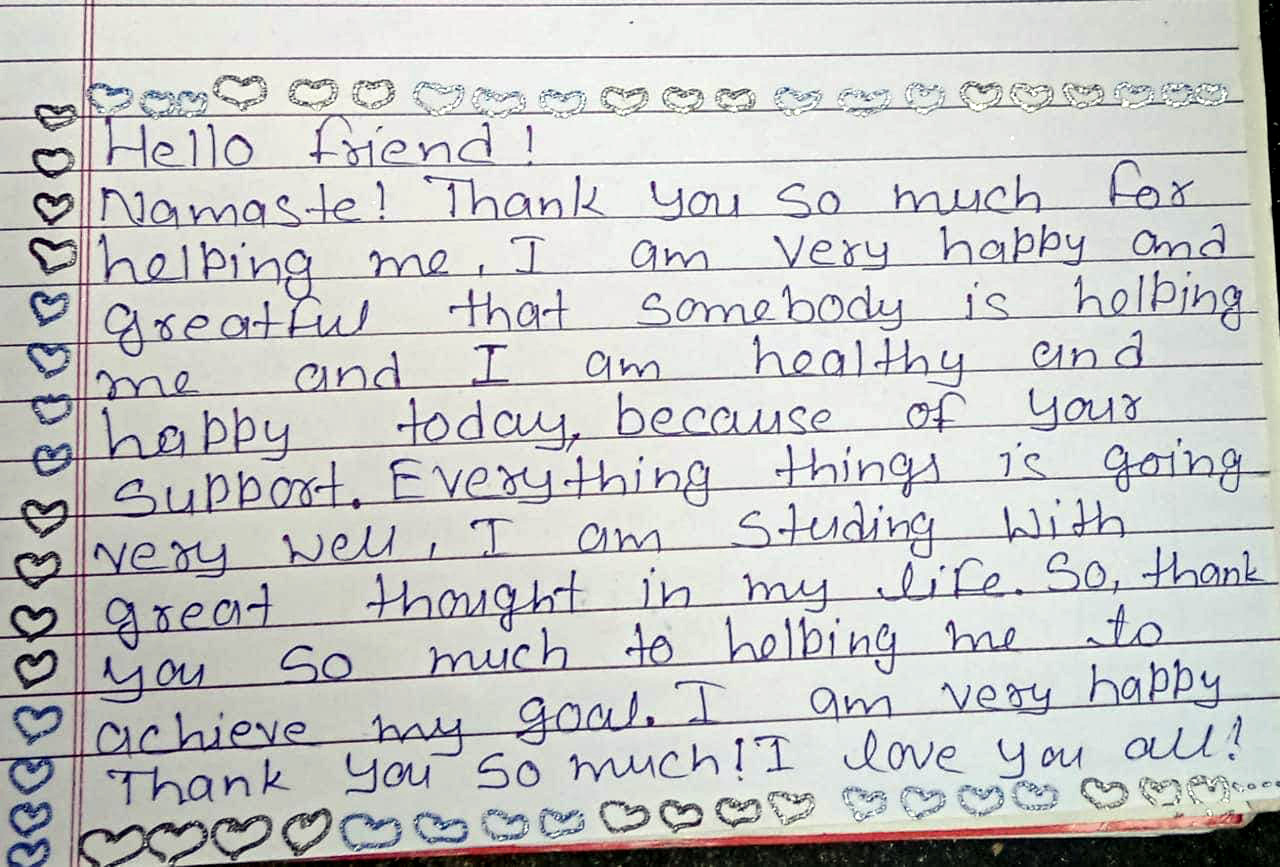 Hello friend!
Namaste! Thank you so much for
helping me. I am very happy and
greatful that somebody is helping
me and I am healthy and
happy today, because of your
support. Everything things is going
very well, I am studing with
great thought in my life. So, thank
you so much to helping me to
achieve my goal. I am very happy
Thank you so much! I love you all!